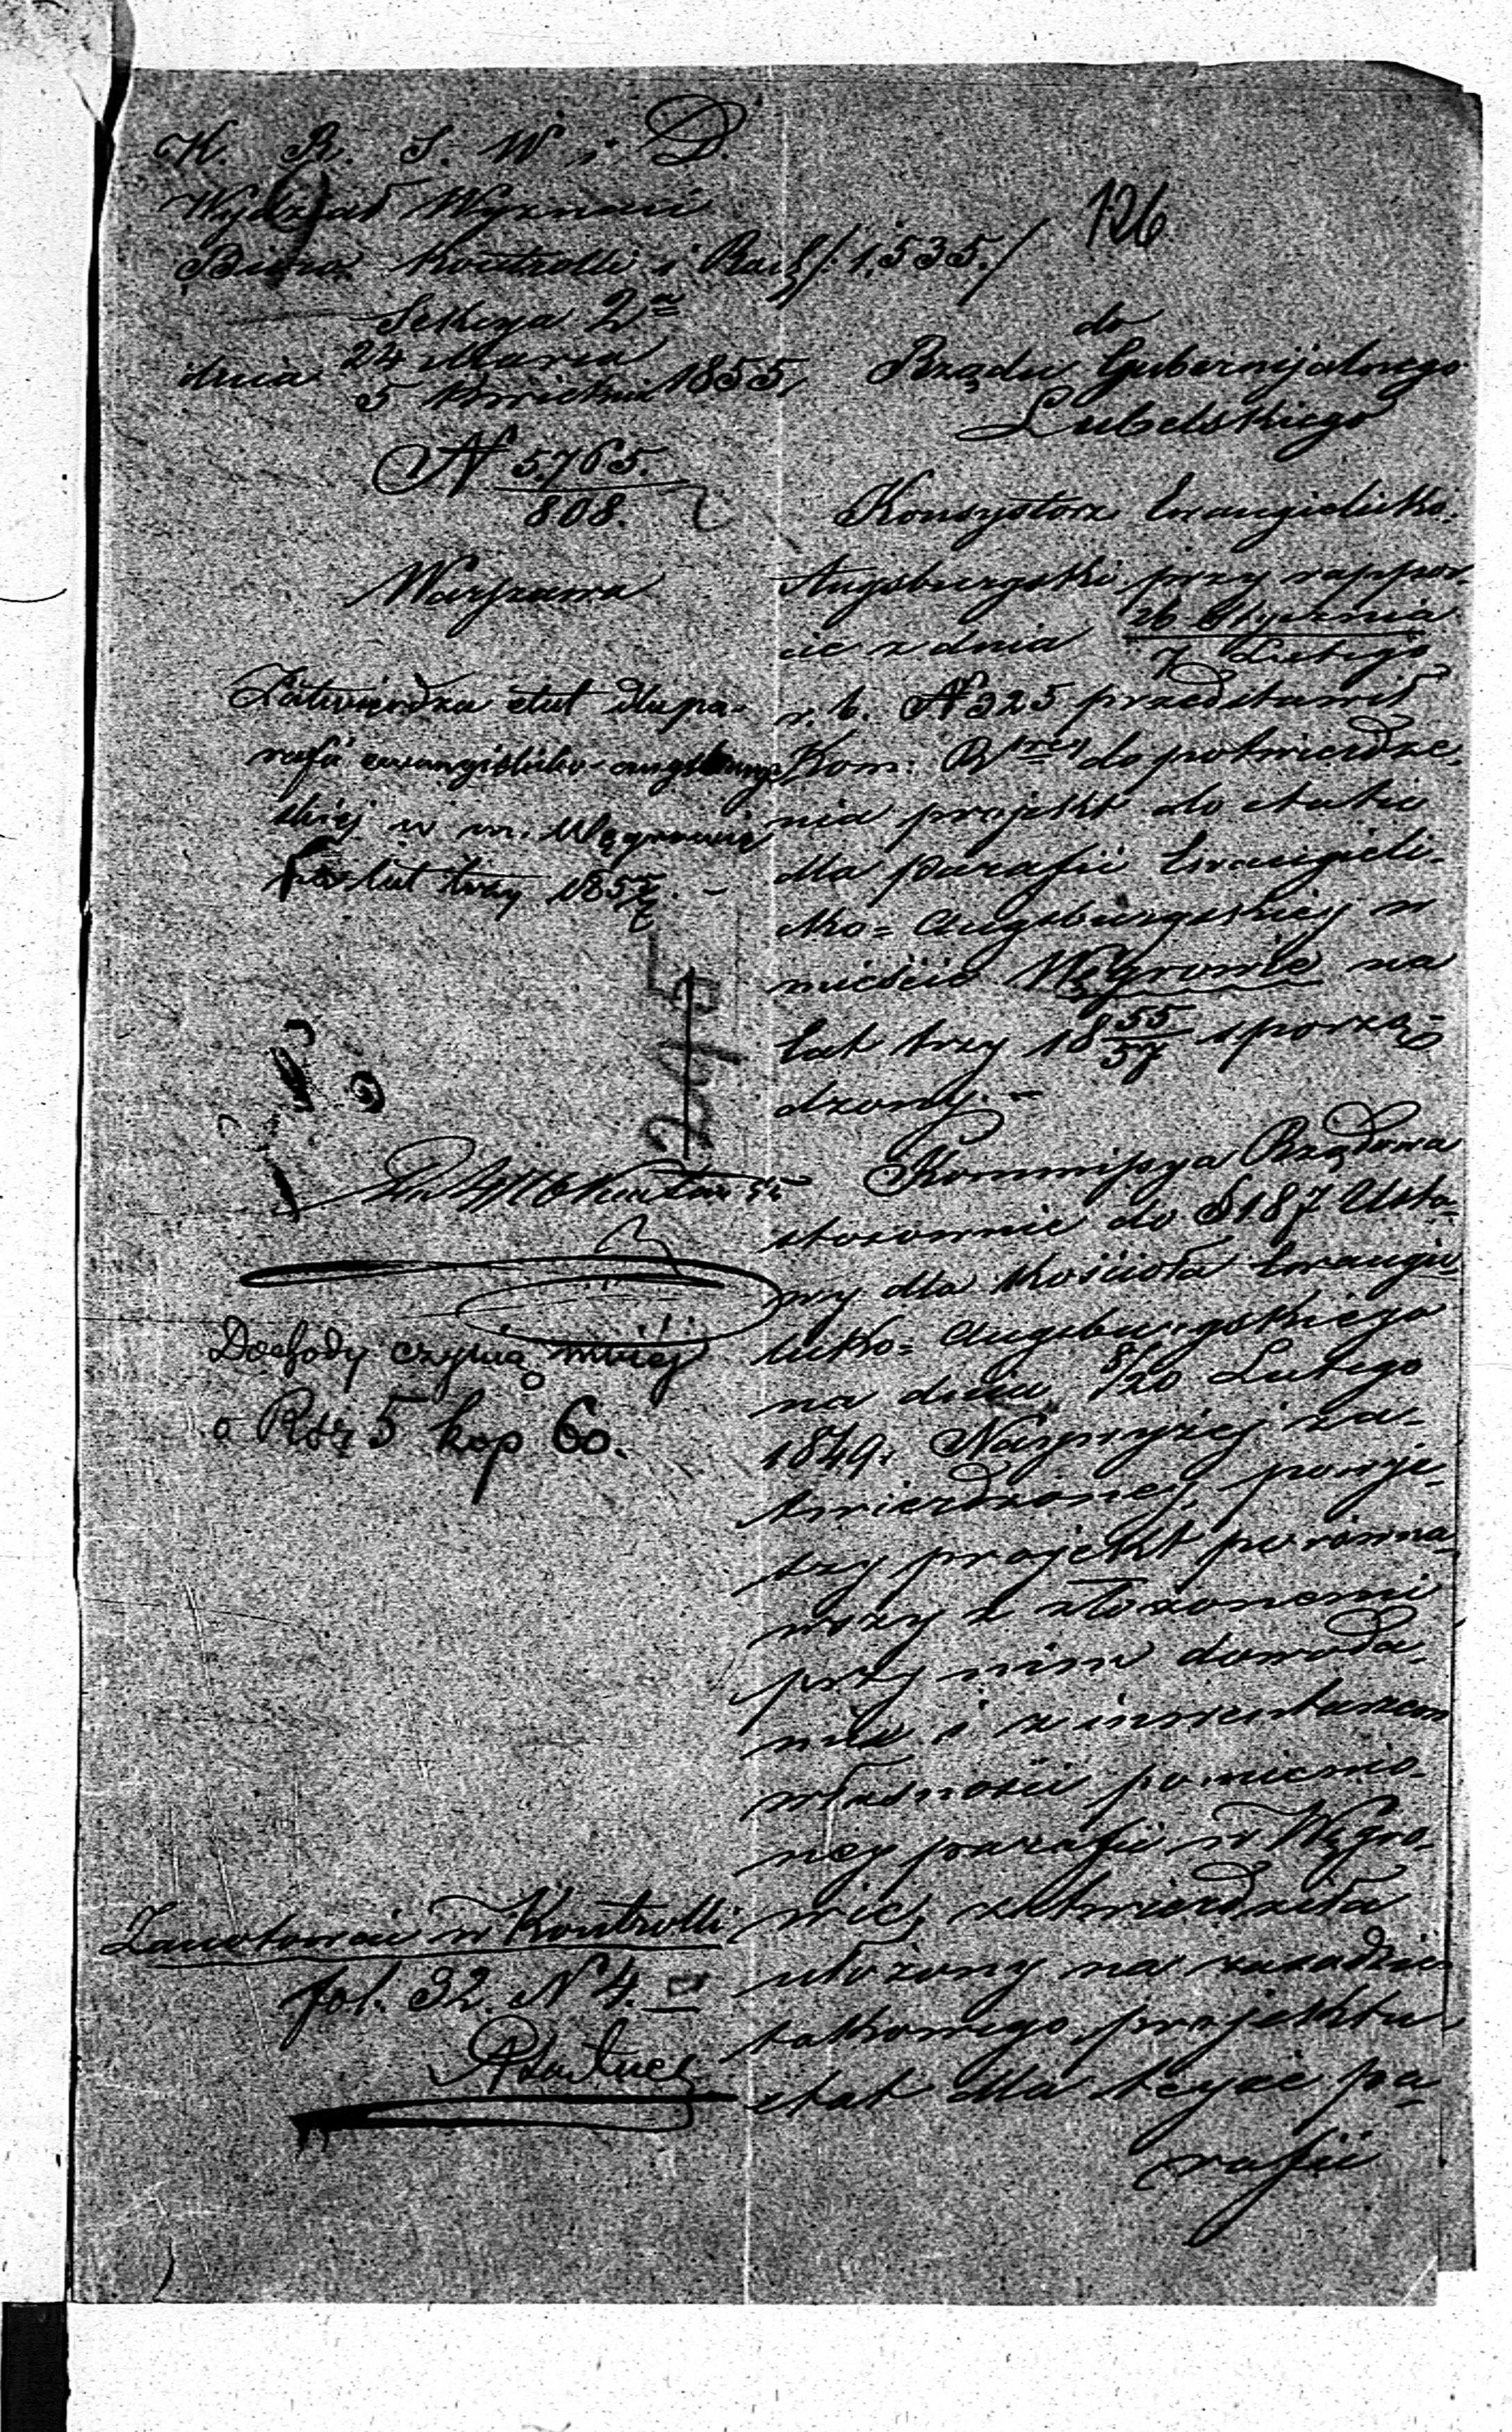 K. R. S. W i D.
Wydział Wyznań
Biuro Kontrolli i Rach: 1,535./
Sekcya 2ª
dnia 24 Marca
5 Kwietnia 1855
N 5765.
808.
Warszawa
Zatwierdza etat dla pa-
rafii ewangielicko-augsburg-
skiej w m. Węgrowie
na lat trzy 1855/7. -
245
Dochody czynią mniej
o Rsr 5 kop 60.
Zanotować w Kontrolli
fol. 32. N 4.
126
do
Rządu Gubernijalnego
Lubelskiego
Konsystorz Ewangielicko-
Augsburgski przy rappor-
cie z dnia 26 Stycznia
7 Lutego
r. b. N 325 przedstawił
Kom: Rzwej do potwierdze-
nia projekt do etatu
dla Parafii Ewangieli-
cko=Augsburgskiej w
mieście Węgrowie na
lat trzy 18 55/57 sporzą-
dzony. -
Kommissya Rządowa
stosownie do § 187 Usta-
wy dla Kościoła Ewangie-
licko=Augsburgskiego
na dniu 8/20 Lutego
1849 r. Najwyżej za-
twierdzonej, powyż-
szy projekt porówna-
wszy z złożonemi
przy nim dowoda-
mi i z inwentarzem
własności pomienio-
nej parafii w Węgro-
wie, zatwierdziła
ułożony na zasadzie
takowego projektu
etat dla tejże pa-
rafii